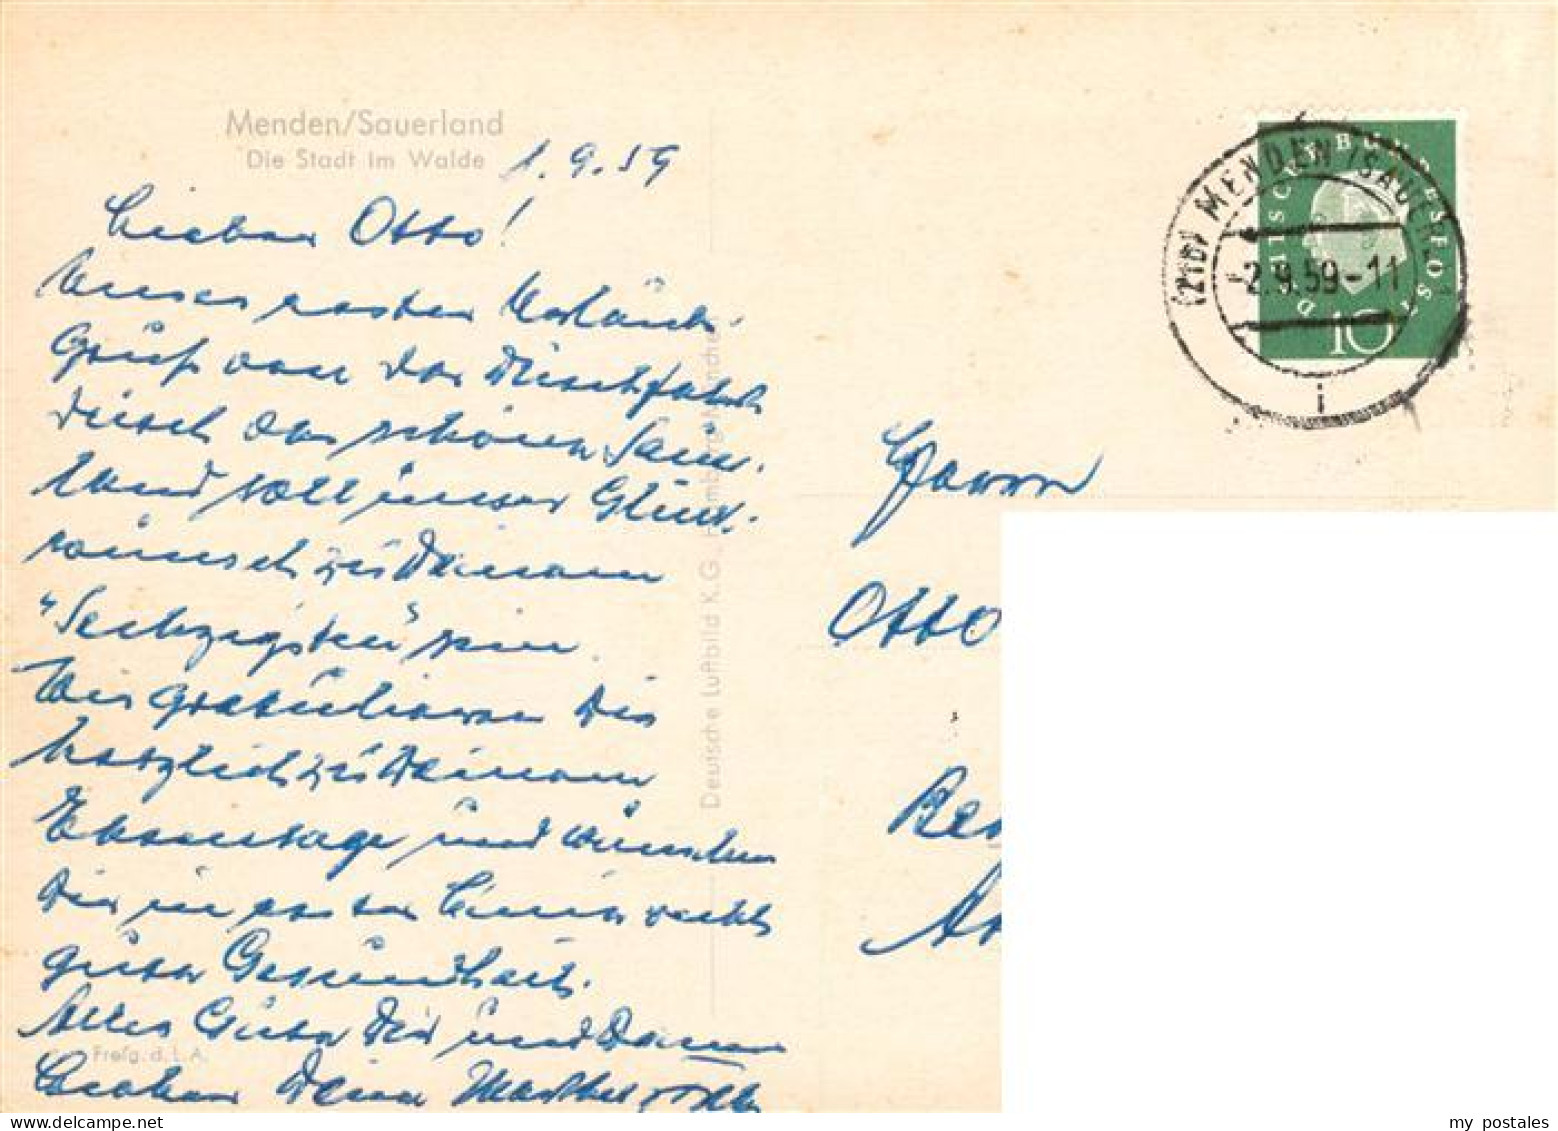 Menden/Sauerland
Die Stadt im Walde
1.9.59
Lieber Otto!
Unser erster Urlaubs-
Gruß von der Durchfahrt
durch das schöne Sauer-
land soll unser Glück-
wunsch zu Deinem
"Sechzigsten" sein.
Wir gratulieren Dir
herzlich zu Deinem
Ehrentage und wünschen
Dir in erster Linie recht
gute Gesundheit.
Alles Gute Dir und Deinen
Lieben Deine
Frefg. d. L.A.
Deutsche Luftbild K.G. Hamburg München
DEUTSCHE BUNDESPOST
10
(21b) MENDEN (SAUERL)
-2.9.59-11
i
Herrn
Otto
my postales